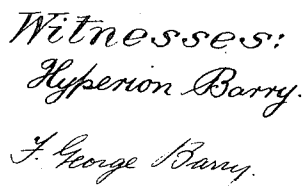 Witnesses:
Hyperion Barry.
F. George Barry.